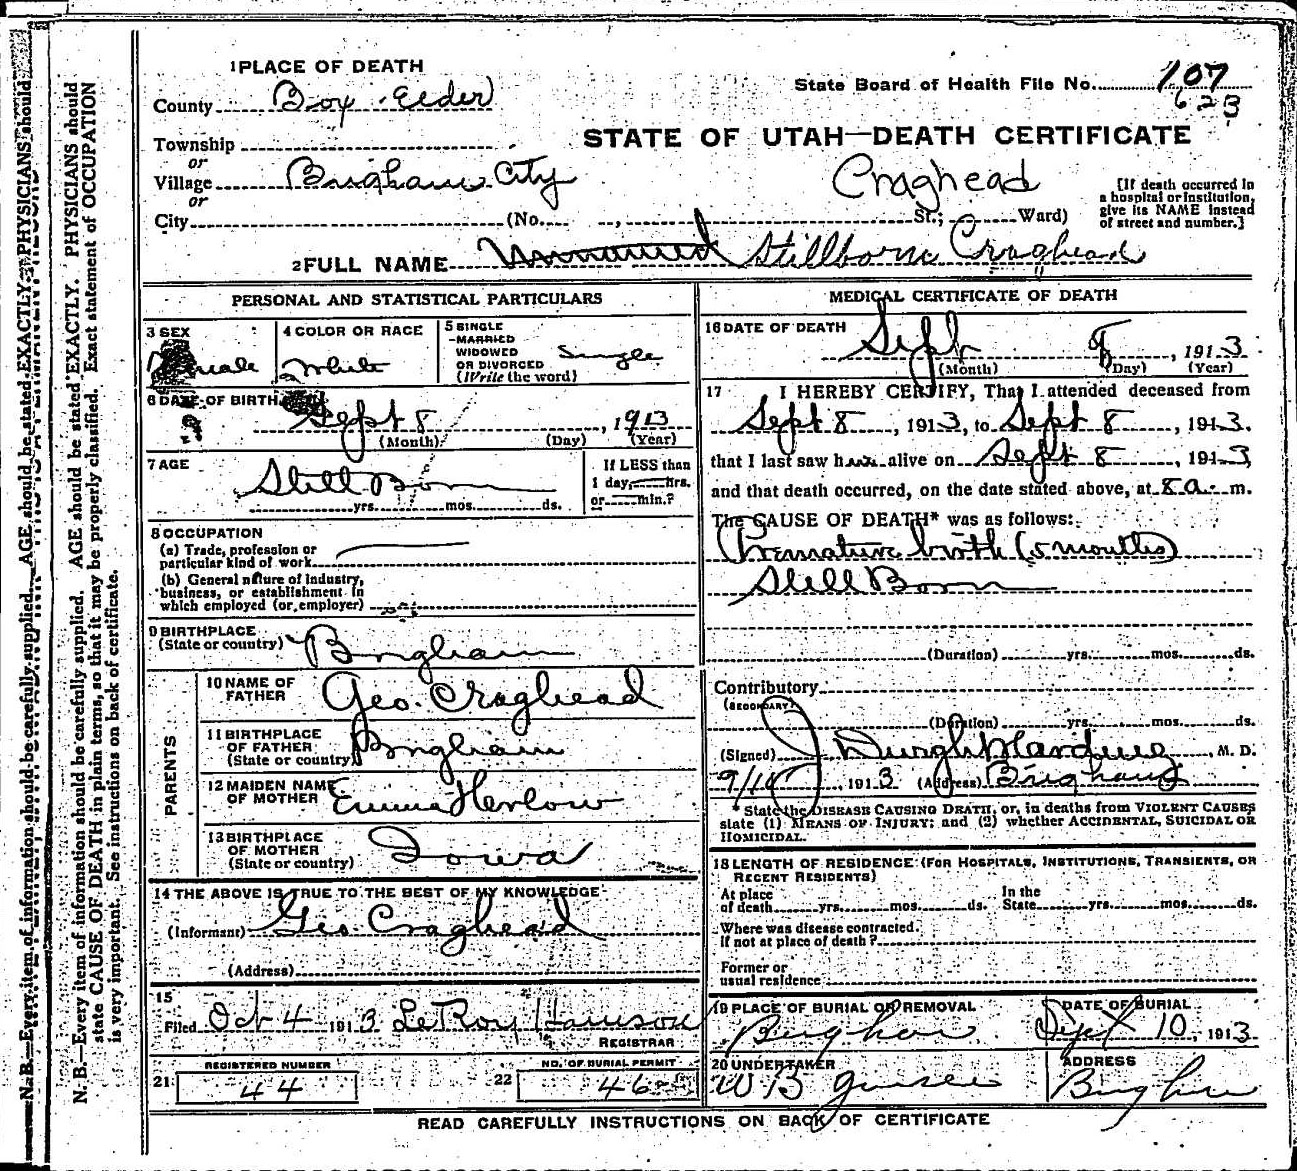 1 PLACE OF DEATH
County Box Elder
State Board of Health File No. 107
623
Township
or
Village Brigham City
or
City (No. , St.; Ward)
STATE OF UTAH—DEATH CERTIFICATE
Craghead
[If death occurred in a hospital or institution, give its NAME instead of street and number.]
2 FULL NAME Unnamed Stillborn Craghead
PERSONAL AND STATISTICAL PARTICULARS
3 SEX
male
4 COLOR OR RACE
White
5 SINGLE
MARRIED
WIDOWED
OR DIVORCED
(Write the word)
Single
6 DATE OF BIRTH
Sept 8, 1913
(Month) (Day) (Year)
7 AGE
Still Born
yrs. mos. ds.
If LESS than
1 day, hrs.
or min.?
8 OCCUPATION
(a) Trade, profession or
particular kind of work
(b) General nature of industry,
business, or establishment in
which employed (or employer)
9 BIRTHPLACE
(State or country) Brigham
PARENTS
10 NAME OF
FATHER Geo. Craghead
11 BIRTHPLACE
OF FATHER
(State or country) Brigham
12 MAIDEN NAME
OF MOTHER Emma
13 BIRTHPLACE
OF MOTHER
(State or country) Iowa
14 THE ABOVE IS TRUE TO THE BEST OF MY KNOWLEDGE
(Informant) Geo. Craghead
(Address)
15
Filed Oct 4 1913 LeRoy
REGISTRAR
REGISTERED NUMBER
21 44
NO. OF BURIAL PERMIT
22 46
MEDICAL CERTIFICATE OF DEATH
16 DATE OF DEATH
Sept 8, 1913
(Month) (Day) (Year)
17 I HEREBY CERTIFY, That I attended deceased from
Sept 8, 1913, to Sept 8, 1913.
that I last saw h alive on Sept 8, 1913,
and that death occurred, on the date stated above, at 8 a. m.
The CAUSE OF DEATH* was as follows:
Premature birth (5 months)
Still Born
(Duration) yrs. mos. ds.
Contributory
(SECONDARY)
(Duration) yrs. mos. ds.
(Signed) , M. D.
9/10, 1913 (Address) Brigham
* State the DISEASE CAUSING DEATH, or, in deaths from VIOLENT CAUSES
state (1) MEANS OF INJURY; and (2) whether ACCIDENTAL, SUICIDAL OR
HOMICIDAL.
18 LENGTH OF RESIDENCE (FOR HOSPITALS, INSTITUTIONS, TRANSIENTS, OR
RECENT RESIDENTS)
At place
of death yrs. mos. ds.
In the
State yrs. mos. ds.
Where was disease contracted,
if not at place of death?
Former or
usual residence
19 PLACE OF BURIAL OR REMOVAL
Brigham
DATE OF BURIAL
Sept 10, 1913
20 UNDERTAKER
W B
ADDRESS
Brigham
READ CAREFULLY INSTRUCTIONS ON BACK OF CERTIFICATE
N. B.—Every item of information should be carefully supplied. AGE should be stated EXACTLY. PHYSICIANS should
state CAUSE OF DEATH in plain terms, so that it may be properly classified. Exact statement of OCCUPATION
is very important. See instructions on back of certificate.
N. B.—Every item of information should be carefully supplied. AGE should be stated EXACTLY. PHYSICIANS should